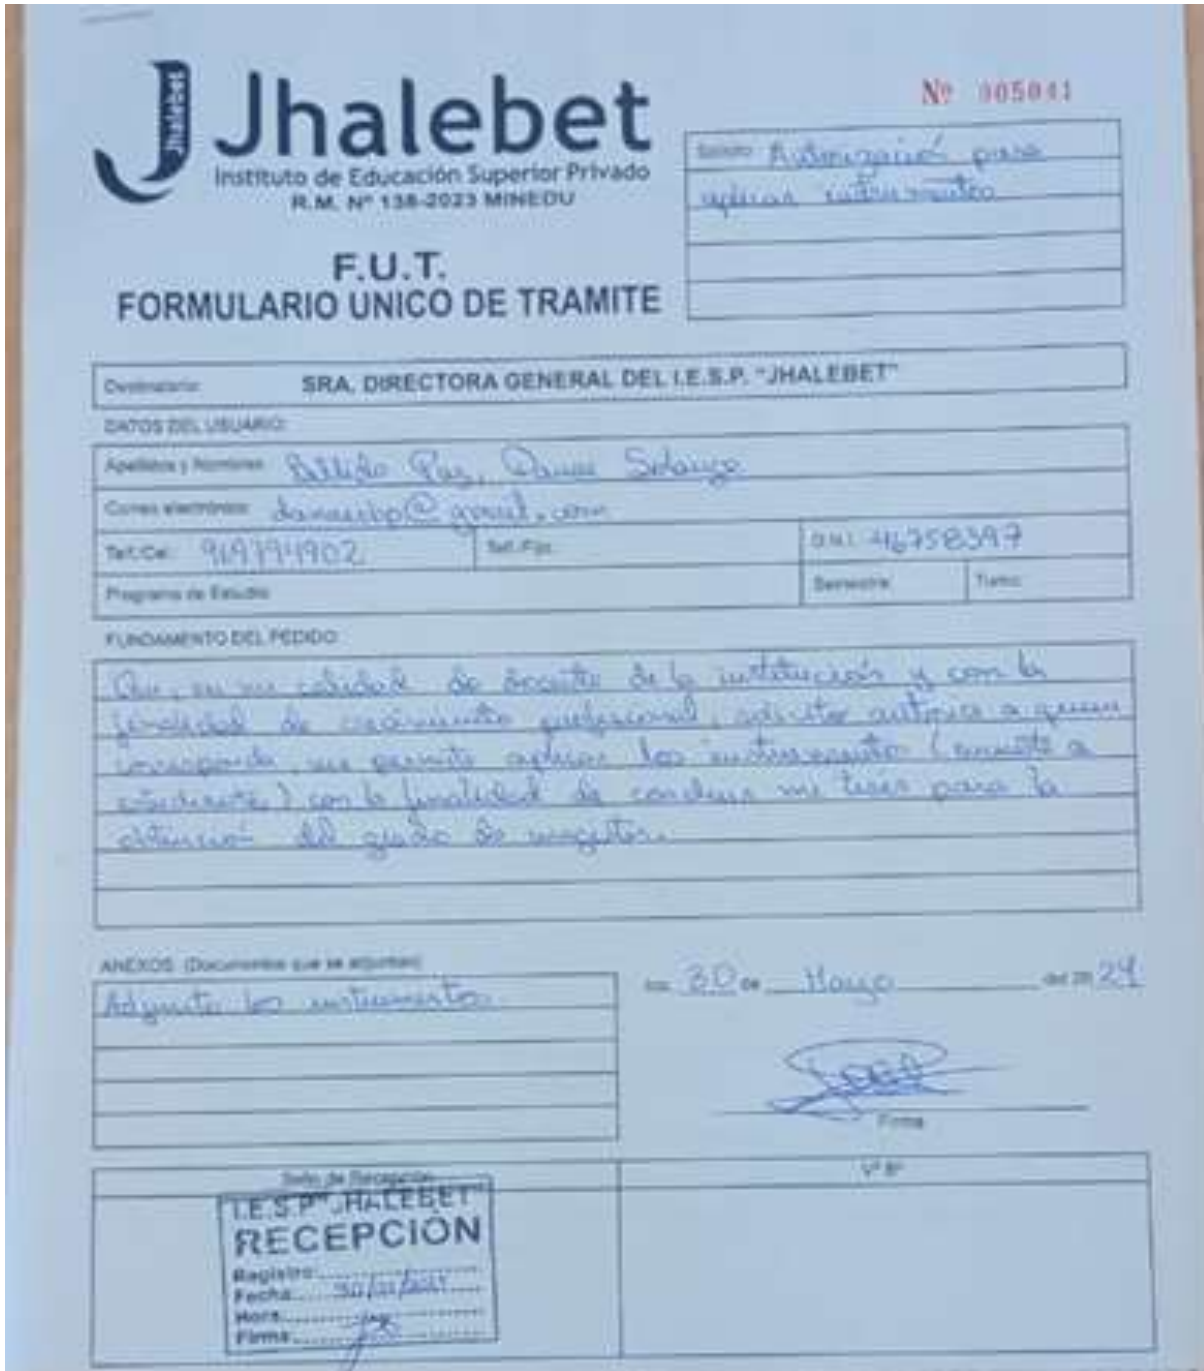 Jhalebet
Jhalebet
Instituto de Educación Superior Privado
R.M. Nº 138-2023 MINEDU
Nº 005041
Autorización para
aplicar instrumentos
F.U.T.
FORMULARIO UNICO DE TRAMITE
Destinatario: SRA. DIRECTORA GENERAL DEL I.E.S.P. "JHALEBET"
DATOS DEL USUARIO:
Apellidos y Nombres: Bellido Paz, Solange
Correo electrónico: @gmail.com
Tel/Cel.: 969794902 Tel./Fijo: D.N.I. 46758397
Programa de Estudio Semestre Turno
FUNDAMENTO DEL PEDIDO:
Que, en mi calidad de docente de la institución y con la
finalidad de crecimiento profesional, solicito autorice a quien
corresponda, me permita aplicar los instrumentos (encuesta a
estudiantes) con la finalidad de concluir mi tesis para la
obtención del grado de magister.
ANEXOS: (Documentos que se adjuntan)
Adjunto los instrumentos.
30 de Mayo del 2024
Firma
Sello de Recepción Vº Bº
I.E.S.P "JHALEBET"
RECEPCIÓN
Registro:
Fecha:
Hora:
Firma: